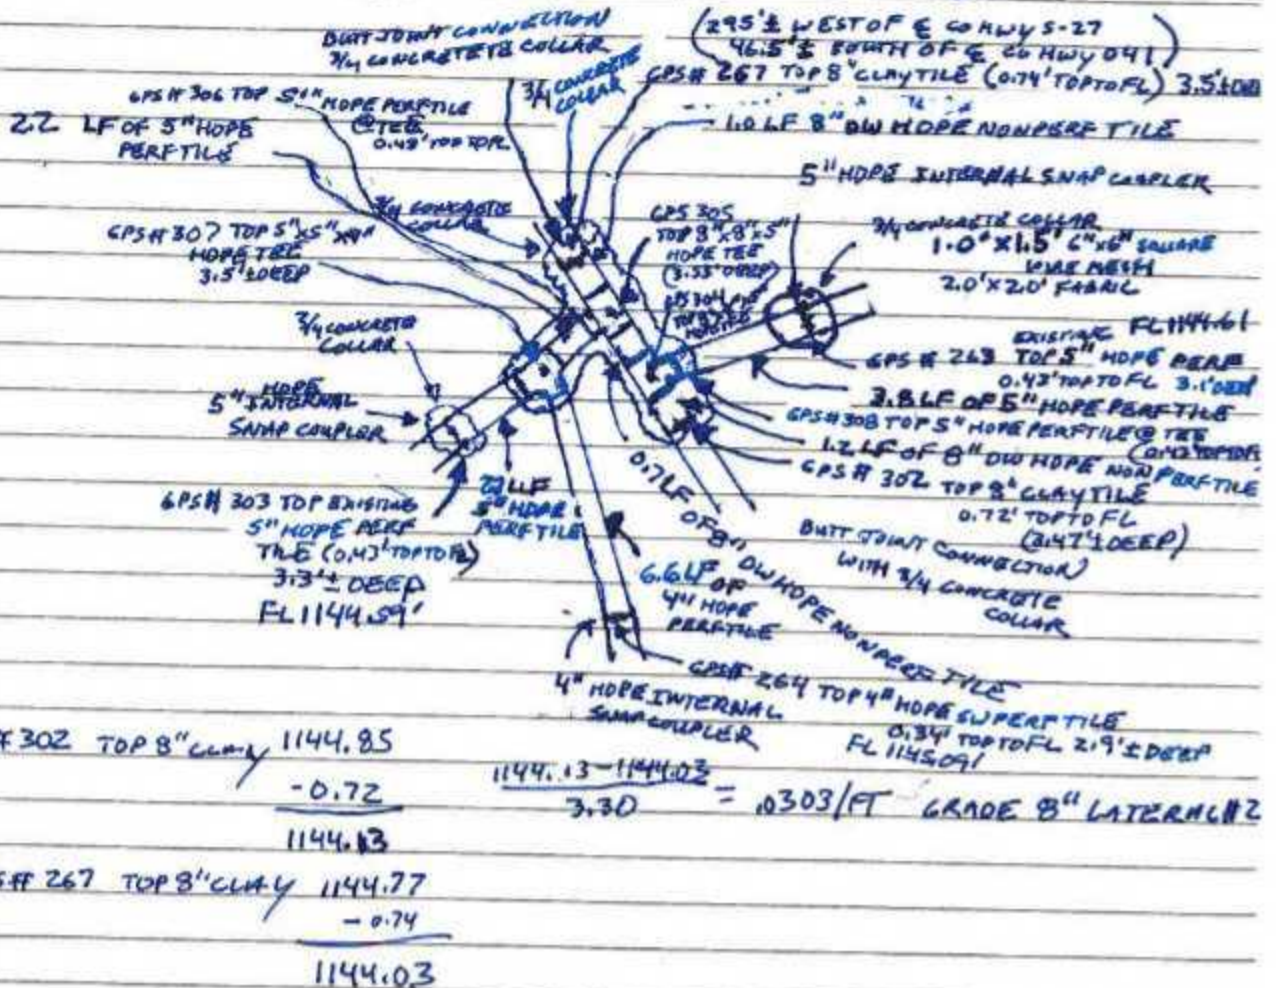 BUTT JOINT CONNECTION
3/4 CONCRETETE COLLAR
(295'± WEST OF ℄ CO HWY S-27
46.5'± SOUTH OF ℄ CO HWY D41)
3/4 CONCRETE
COLLAR
GPS# 267 TOP 8" CLAY TILE (0.74' TOP TO FL) 3.5'±
1.0 LF 8" DW HDPE NONPERF TILE
GPS# 306 TOP 5" HDPE PERF TILE
@ TEE
0.43' TOP TO FL
22 LF OF 5" HDPE
PERF TILE
5" HDPE INTERNAL SNAP COUPLER
3/4 CONCRETE
COLLAR
GPS 305
TOP 8"x8"x5"
HDPE TEE
(3.55' DEEP)
GPS 304
3/4 CONCRETE COLLAR
1.0' X 1.5' 6"x6" SQUARE
WIRE MESH
2.0' X 2.0' FABRIC
GPS# 307 TOP 5"x5"x4"
HDPE TEE
3.5'± DEEP
3/4 CONCRETE
COLLAR
EXISTING FL 1144.61
GPS # 263 TOP 5" HDPE PERF
0.43' TOP TO FL 3.1' DEEP
3.8 LF OF 5" HDPE PERF TILE
GPS# 308 TOP 5" HDPE PERF TILE @ TEE
(0.43' TOP TO FL
1.2 LF OF 8" DW HDPE NONPERF TILE
GPS# 302 TOP 8" CLAY TILE
0.72' TOP TO FL
(3.47'± DEEP)
HDPE
5" INTERNAL
SNAP COUPLER
GPS# 303 TOP EXISTING
5" HDPE PERF
TILE (0.43' TOP TO FL)
3.3'± DEEP
FL 1144.59'
LF
5" HDPE
PERF TILE
0.7 LF OF 8" DW HDPE NONPERF TILE
BUTT JOINT CONNECTION)
WITH 3/4 CONCRETE
COLLAR
6.6 LF
OF
4" HDPE
PERF TILE
4" HDPE INTERNAL
SNAP COUPLER
GPS# 264 TOP 4" HDPE SW PERF TILE
0.34' TOP TO FL 2.9'± DEEP
FL 1145.09'
#302 TOP 8" CLAY 1144.85
-0.72
1144.13
1144.13-1144.03
3.30
= .0303/FT GRADE 8" LATERAL #2
S# 267 TOP 8" CLAY 1144.77
- 0.74
1144.03